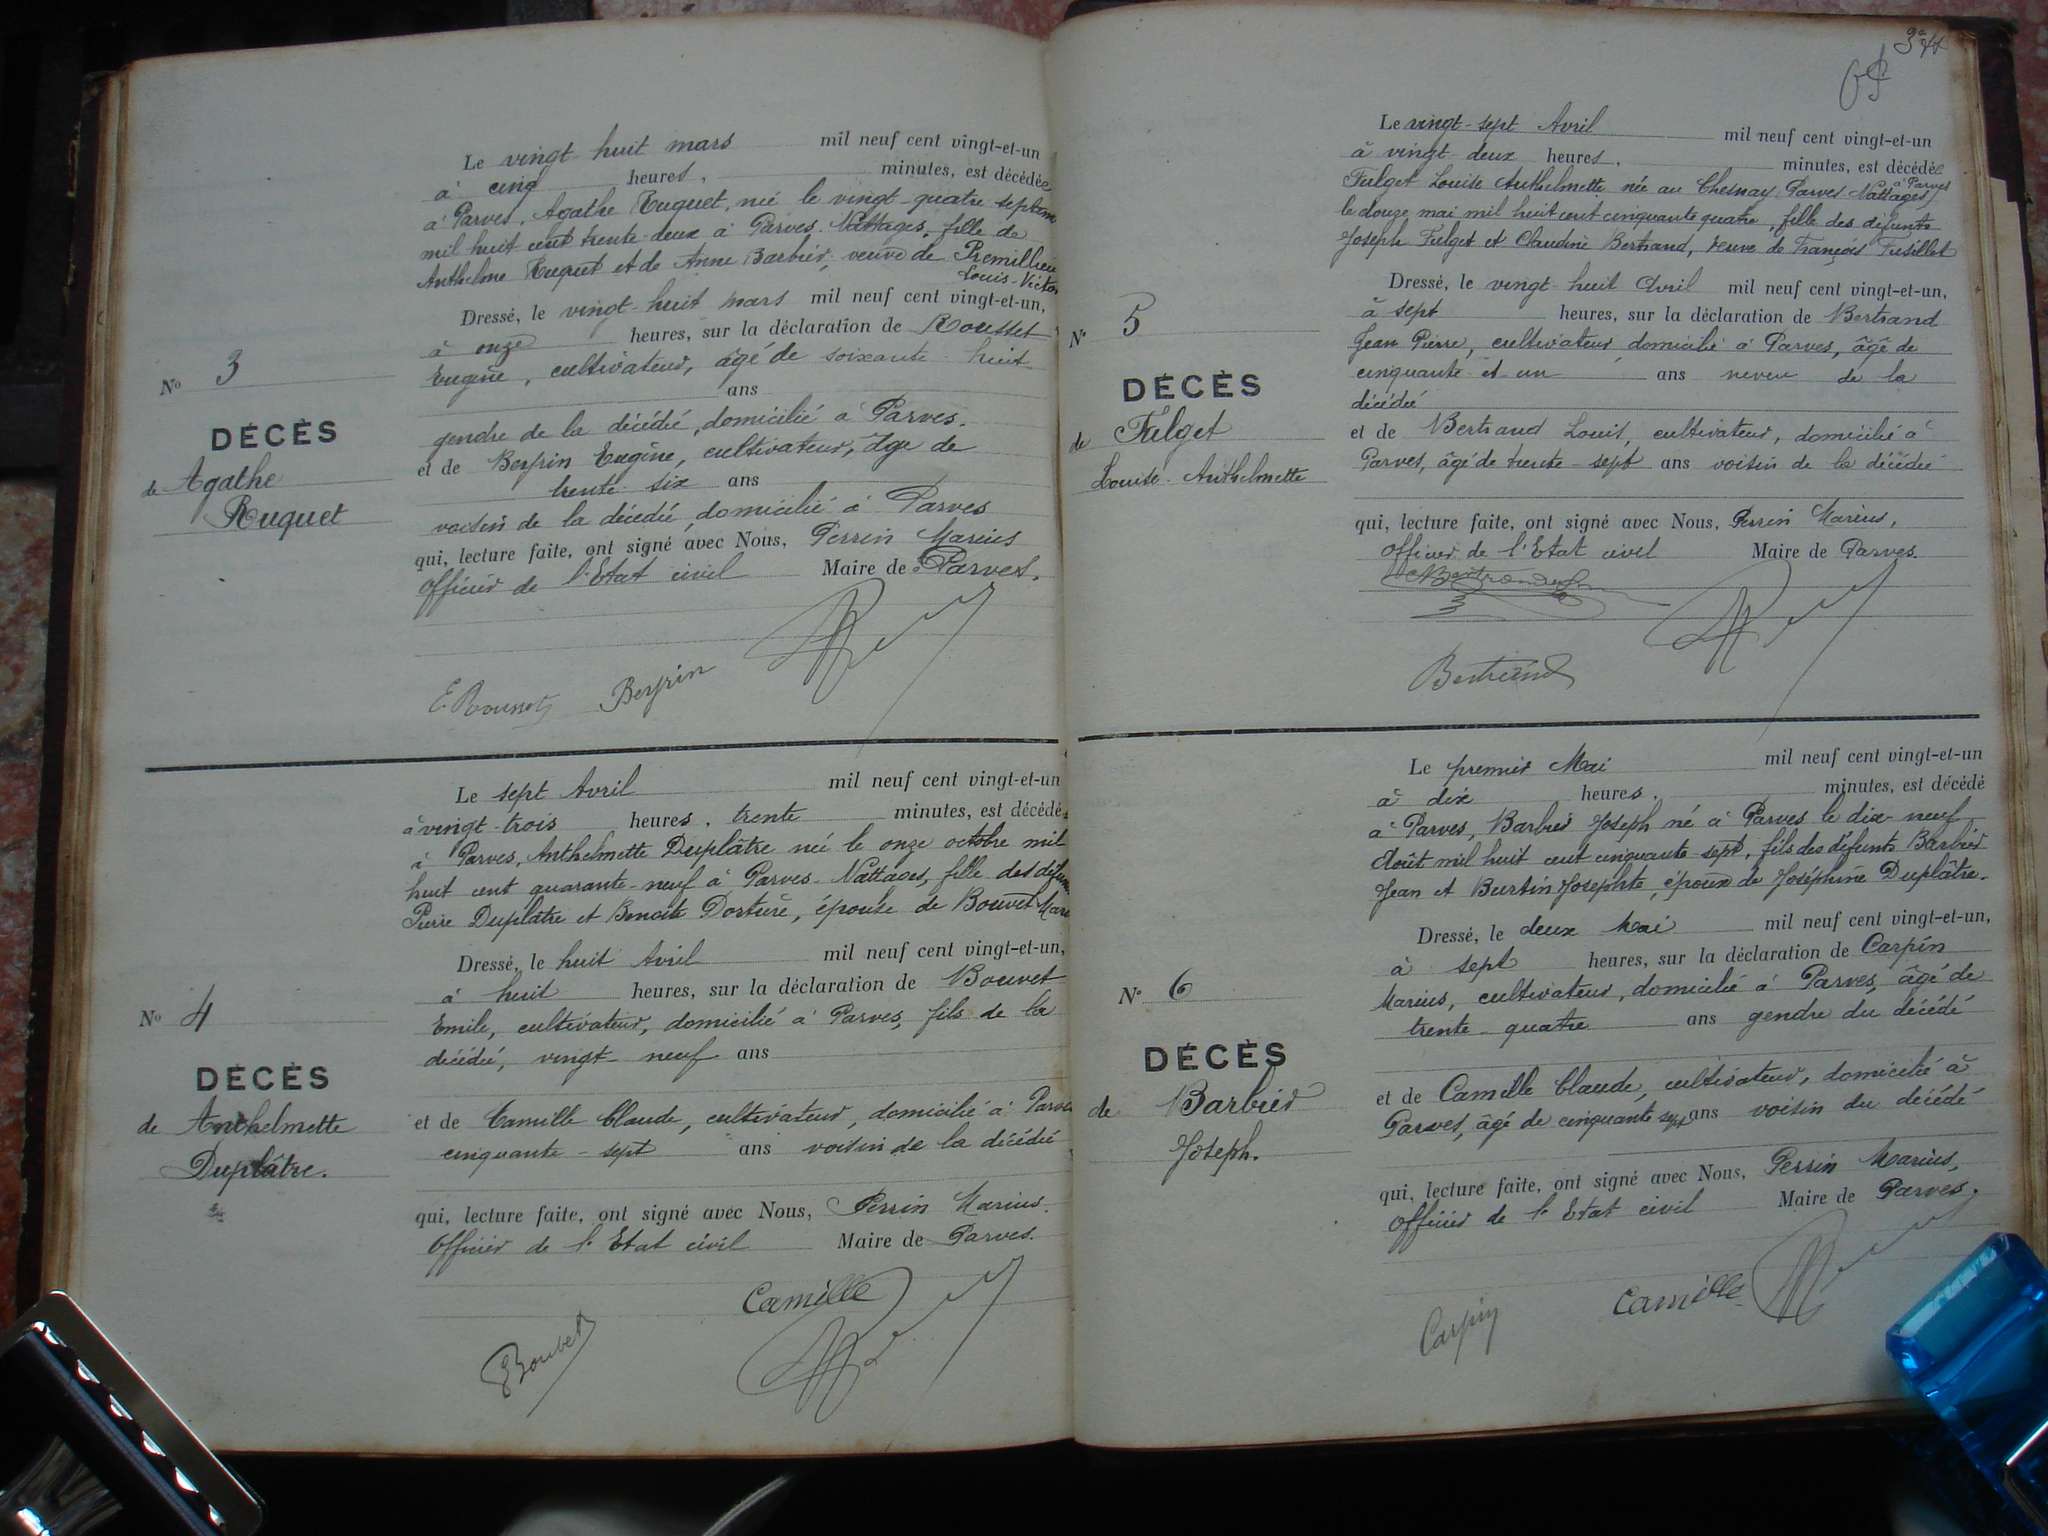 Le vingt-huit mars mil neuf cent vingt-et-un
à cinq heures, minutes, est décédée
à Parves, Agathe Ruguet, née le vingt-quatre septem
mil huit cent trente-deux à Parves-Nattages, fille de
Anthelme Ruguet et de Anne Barbier, veuve de Premillieu
Louis-Victor
Dressé, le vingt-huit mars mil neuf cent vingt-et-un,
à onze heures, sur la déclaration de Rousset
Eugène, cultivateur, âgé de soixante-huit
ans
gendre de la décédée, domicilié à Parves.
et de Berfrin Eugène, cultivateur, âgé de
trente-six ans
voisin de la décédée, domicilié à Parves
qui, lecture faite, ont signé avec Nous, Perrin Marius
Officier de l'Etat civil Maire de Parves.
E. Rousset Berfrin
No 3
DÉCÈS
de Agathe
Ruguet
Le sept Avril mil neuf cent vingt-et-un
à vingt-trois heures, trente minutes, est décédée
à Parves, Anthelmette Duplâtre née le onze octobre mil
huit cent quarante-neuf à Parves-Nattages, fille des défunts
Pierre Duplâtre et Benoite Dorture, épouse de Bouvet
Dressé, le huit Avril mil neuf cent vingt-et-un,
à huit heures, sur la déclaration de Bouvet
Emile, cultivateur, domicilié à Parves, fils de la
décédée, vingt-neuf ans
et de Camille Claude, cultivateur, domicilié à Parves
cinquante-sept ans voisin de la décédée
qui, lecture faite, ont signé avec Nous, Perrin Marius.
Officier de l'Etat civil Maire de Parves.
Camille
Bouvet
No 4
DÉCÈS
de Anthelmette
Duplâtre.
Le vingt-sept Avril mil neuf cent vingt-et-un
à vingt-deux heures, minutes, est décédée
à Parves
Fulget Louise Anthelmette née au Chesnay Parves-Nattages
le douze mai mil huit cent cinquante quatre, fille des défunts
Joseph Fulget et Claudine Bertrand, veuve de François Fusillet
Dressé, le vingt-huit Avril mil neuf cent vingt-et-un,
à sept heures, sur la déclaration de Bertrand
Jean Pierre, cultivateur domicilié à Parves, âgé de
cinquante et un ans neveu de la
décédée
et de Bertrand Louis, cultivateur, domicilié à
Parves, âgé de trente-sept ans voisin de la décédée
qui, lecture faite, ont signé avec Nous, Perrin Marius,
Officier de l'Etat civil Maire de Parves.
Bertrand
Bertrand
No 5
DÉCÈS
de Fulget
Louise Anthelmette
Le premier Mai mil neuf cent vingt-et-un
à dix heures, minutes, est décédé
à Parves, Barbier Joseph né à Parves le dix-neuf
Août mil huit cent cinquante-sept, fils des défunts Barbier
Jean et Burtin Josephte, époux de Joséphine Duplâtre.
Dressé, le deux Mai mil neuf cent vingt-et-un,
à sept heures, sur la déclaration de Carpin
Marius, cultivateur, domicilié à Parves, âgé de
trente-quatre ans gendre du décédé
et de Camille Claude, cultivateur, domicilié à
Parves, âgé de cinquante sept ans voisin du décédé
qui, lecture faite, ont signé avec Nous, Perrin Marius,
Officier de l'Etat civil Maire de Parves.
Carpin Camille
No 6
DÉCÈS
de Barbier
Joseph.